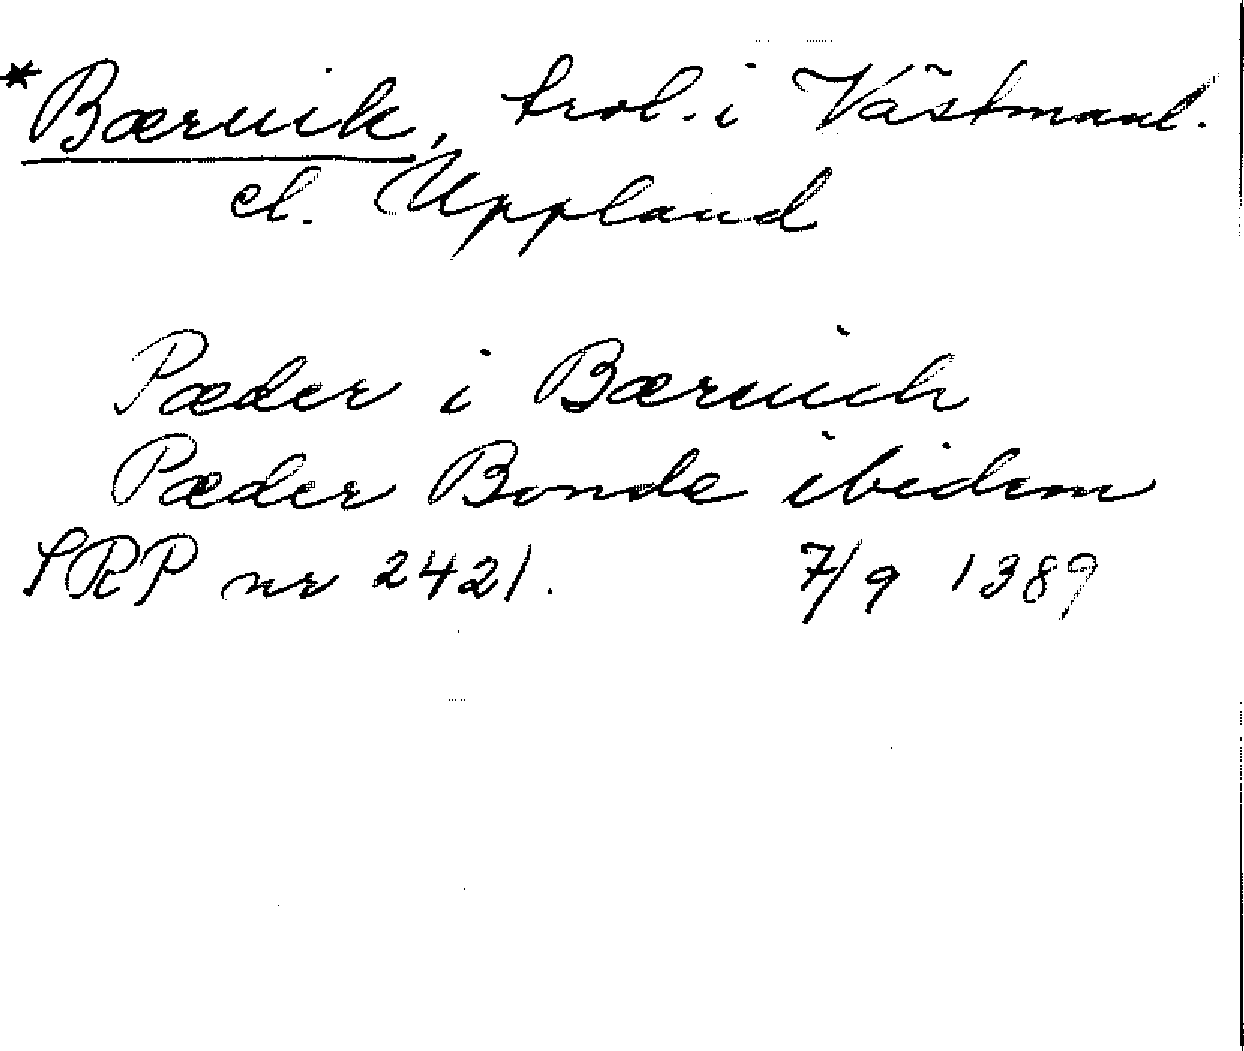 *Bæruik, trol. i Västmanl.
el. Uppland
Pæder i Bæruich
Pæder Bonde ibidem
SRP nr 2421. 7/9 1389